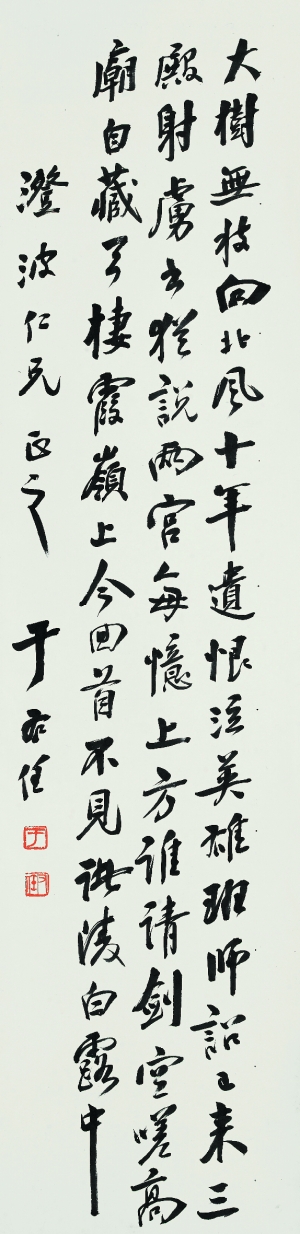 大樹無枝向北風十年遺恨泣英雄班師詔已來三
殿射虜書猶說兩宮每憶上方誰請劍空嗟高
廟自藏弓棲霞嶺上今回首不見諸陵白露中
澄波仁兄正之 于右任